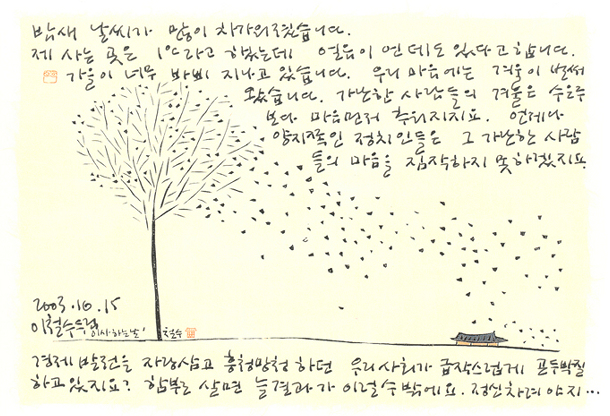 밤새 날씨가 많이 차가워졌습니다.
제 사는 곳은 1°C라고 했는데 얼음이 언 데도 있다고 합니다.
가을이 너무 바삐 지나고 있습니다. 우리 마음에는 겨울이 벌써
왔습니다. 가난한 사람들의 겨울은 수은주
보다 마음먼저 추워지지요. 언제나
양지쪽인 정치인들은 그 가난한 사람
들의 마음을 짐작하지 못하겠지요.
2003.10.15
이철수드림 '이사하는날' 철수
경제 발전을 자랑삼고 흥청망청 하던 우리사회가 급작스럽게 곤두박질
하고 있지요? 함부로 살면 늘 결과가 이럴 수밖에요. 정신차려야지…